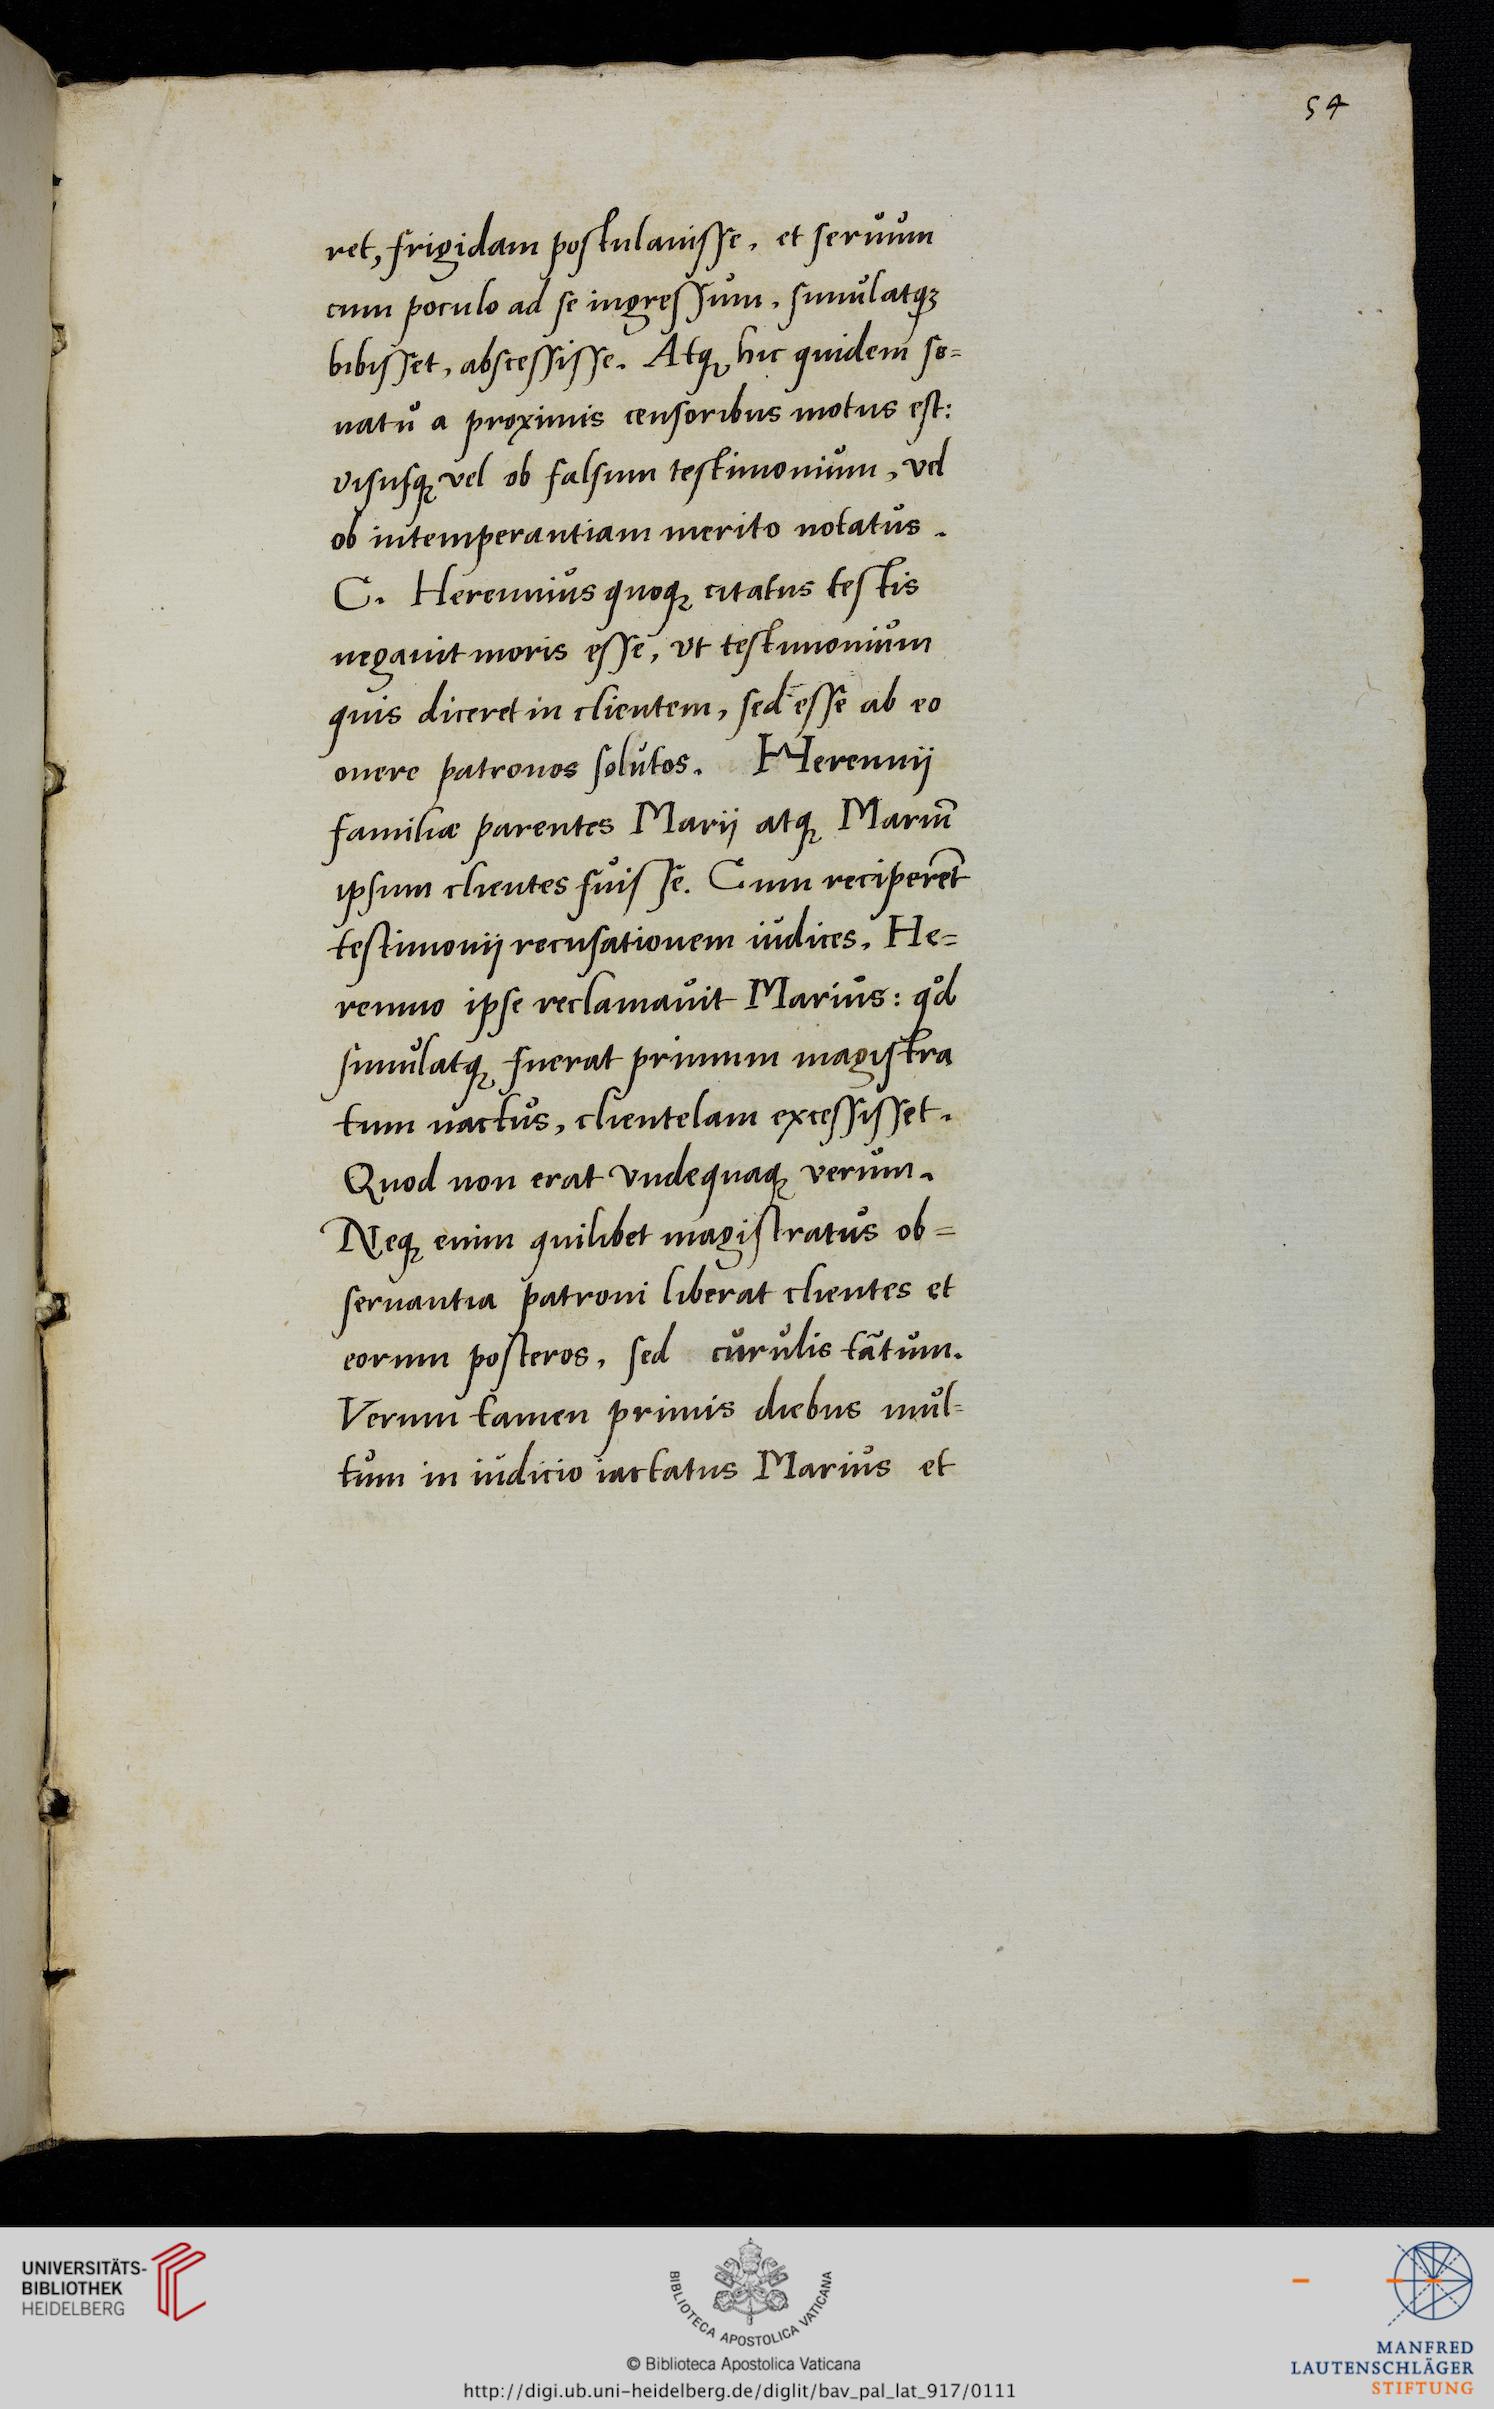 54
ret, frigidam postulauisse, et seruum
cum poculo ad se ingressum, simulatqꝫ
bibisset, abscessisse. Atqꝫ hic quidem se=
natu a proximis censoribus motus est:
visusqꝫ vel ob falsum testimonium, vel
ob intemperantiam merito notatus.
C. Herennius quoqꝫ citatus testis
negauit moris esse, vt testimonium
quis diceret in clientem, sed esse ab eo
onere patronos solutos. Herennij
familiæ parentes Marij atqꝫ Mariũ
ipsum clientes fuisse. Cum reciperẽt
testimonij recusationem iudices, He=
rennio ipse reclamauit Marius: qd
simulatqꝫ fuerat primum magistra
tum nactus, clientelam excessisset.
Quod non erat vndequaqꝫ verum.
Neqꝫ enim quilibet magistratus ob=
seruantia patroni liberat clientes et
eorum posteros, sed curulis tãtum.
Verum tamen primis diebus mul=
tum in iudicio iactatus Marius et
UNIVERSITÄTS-
BIBLIOTHEK
HEIDELBERG
BIBLIOTECA APOSTOLICA VATICANA
© Biblioteca Apostolica Vaticana
http://digi.ub.uni-heidelberg.de/diglit/bav_pal_lat_917/0111
MANFRED
LAUTENSCHLÄGER
STIFTUNG